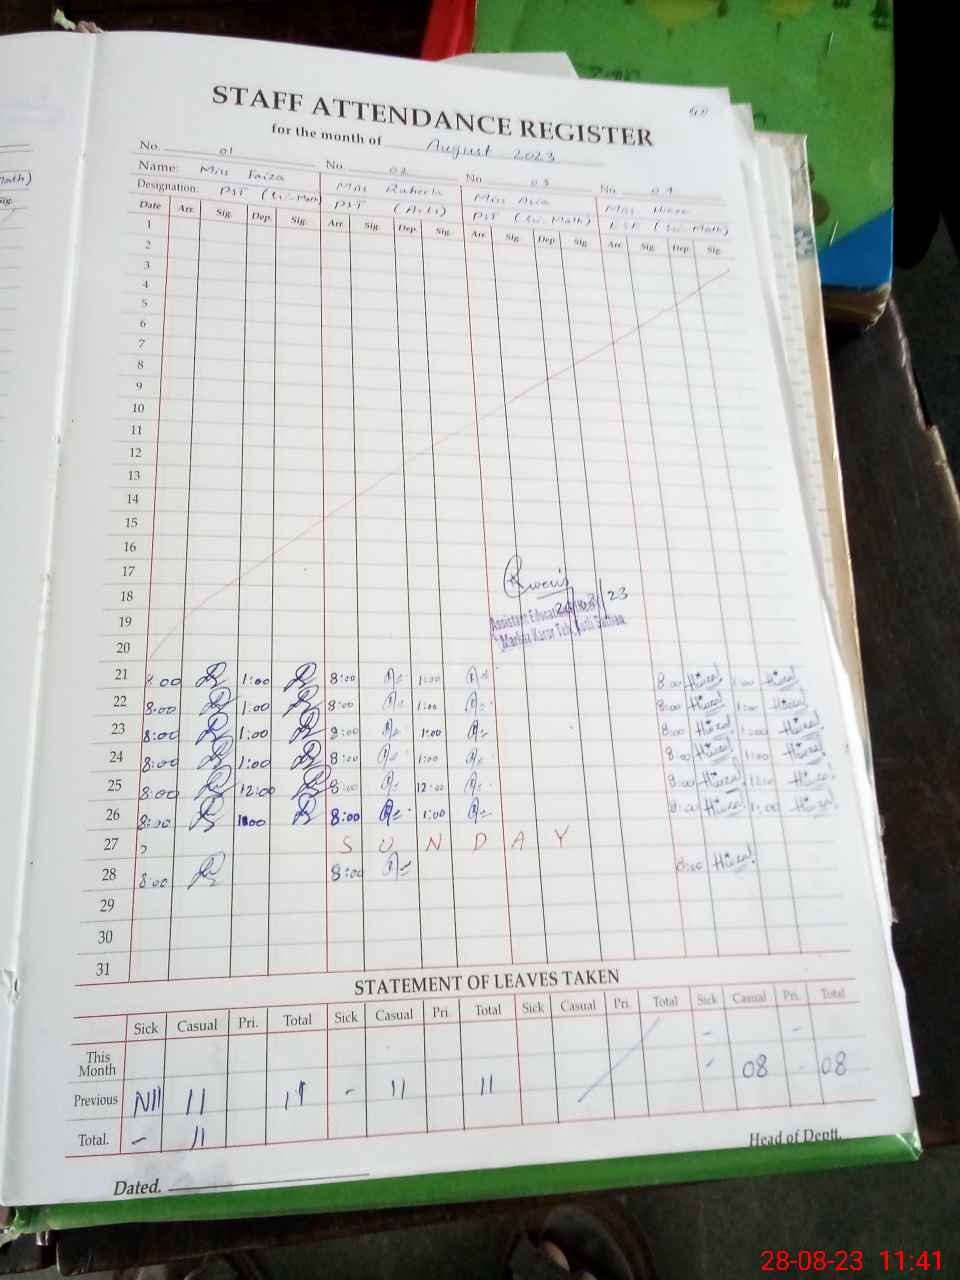 STAFF ATTENDANCE REGISTER
for the month of August 2023
No. 01 No. 02 No. 03 No. 04
Name: Miss Faiza Miss Raheela Miss Asia Miss
Designation: PST (Sci-Math) PST (Arts) PST (Sci-Math) ESE (Sci-Math)
Date Arr. Sig. Dep. Sig. Arr. Sig. Dep. Sig. Arr. Sig. Dep. Sig. Arr. Sig. Dep. Sig.
1
2
3
4
5
6
7
8
9
10
11
12
13
14
15
16
17
18
19 Assistant Education
20 Markaz Karor
21 8:00 1:00 8:00 1:00 8:00 1:00
22 8:00 1:00 8:00 1:00 8:00 1:00
23 8:00 1:00 8:00 1:00 8:00 1:00
24 8:00 1:00 8:00 1:00 8:00 1:00
25 8:00 12:00 8:00 12:00 8:00 12:00
26 8:00 1:00 8:00 1:00 8:00 1:00
27 SUNDAY
28 8:00 8:00 8:00
29
30
31
STATEMENT OF LEAVES TAKEN
Sick Casual Pri. Total Sick Casual Pri. Total Sick Casual Pri. Total Sick Casual Pri. Total
This Month - -
Previous Nil 11 11 - 11 11 - 08 - 08
Total. - 11
Head of Deptt.
Dated.
28-08-23 11:41